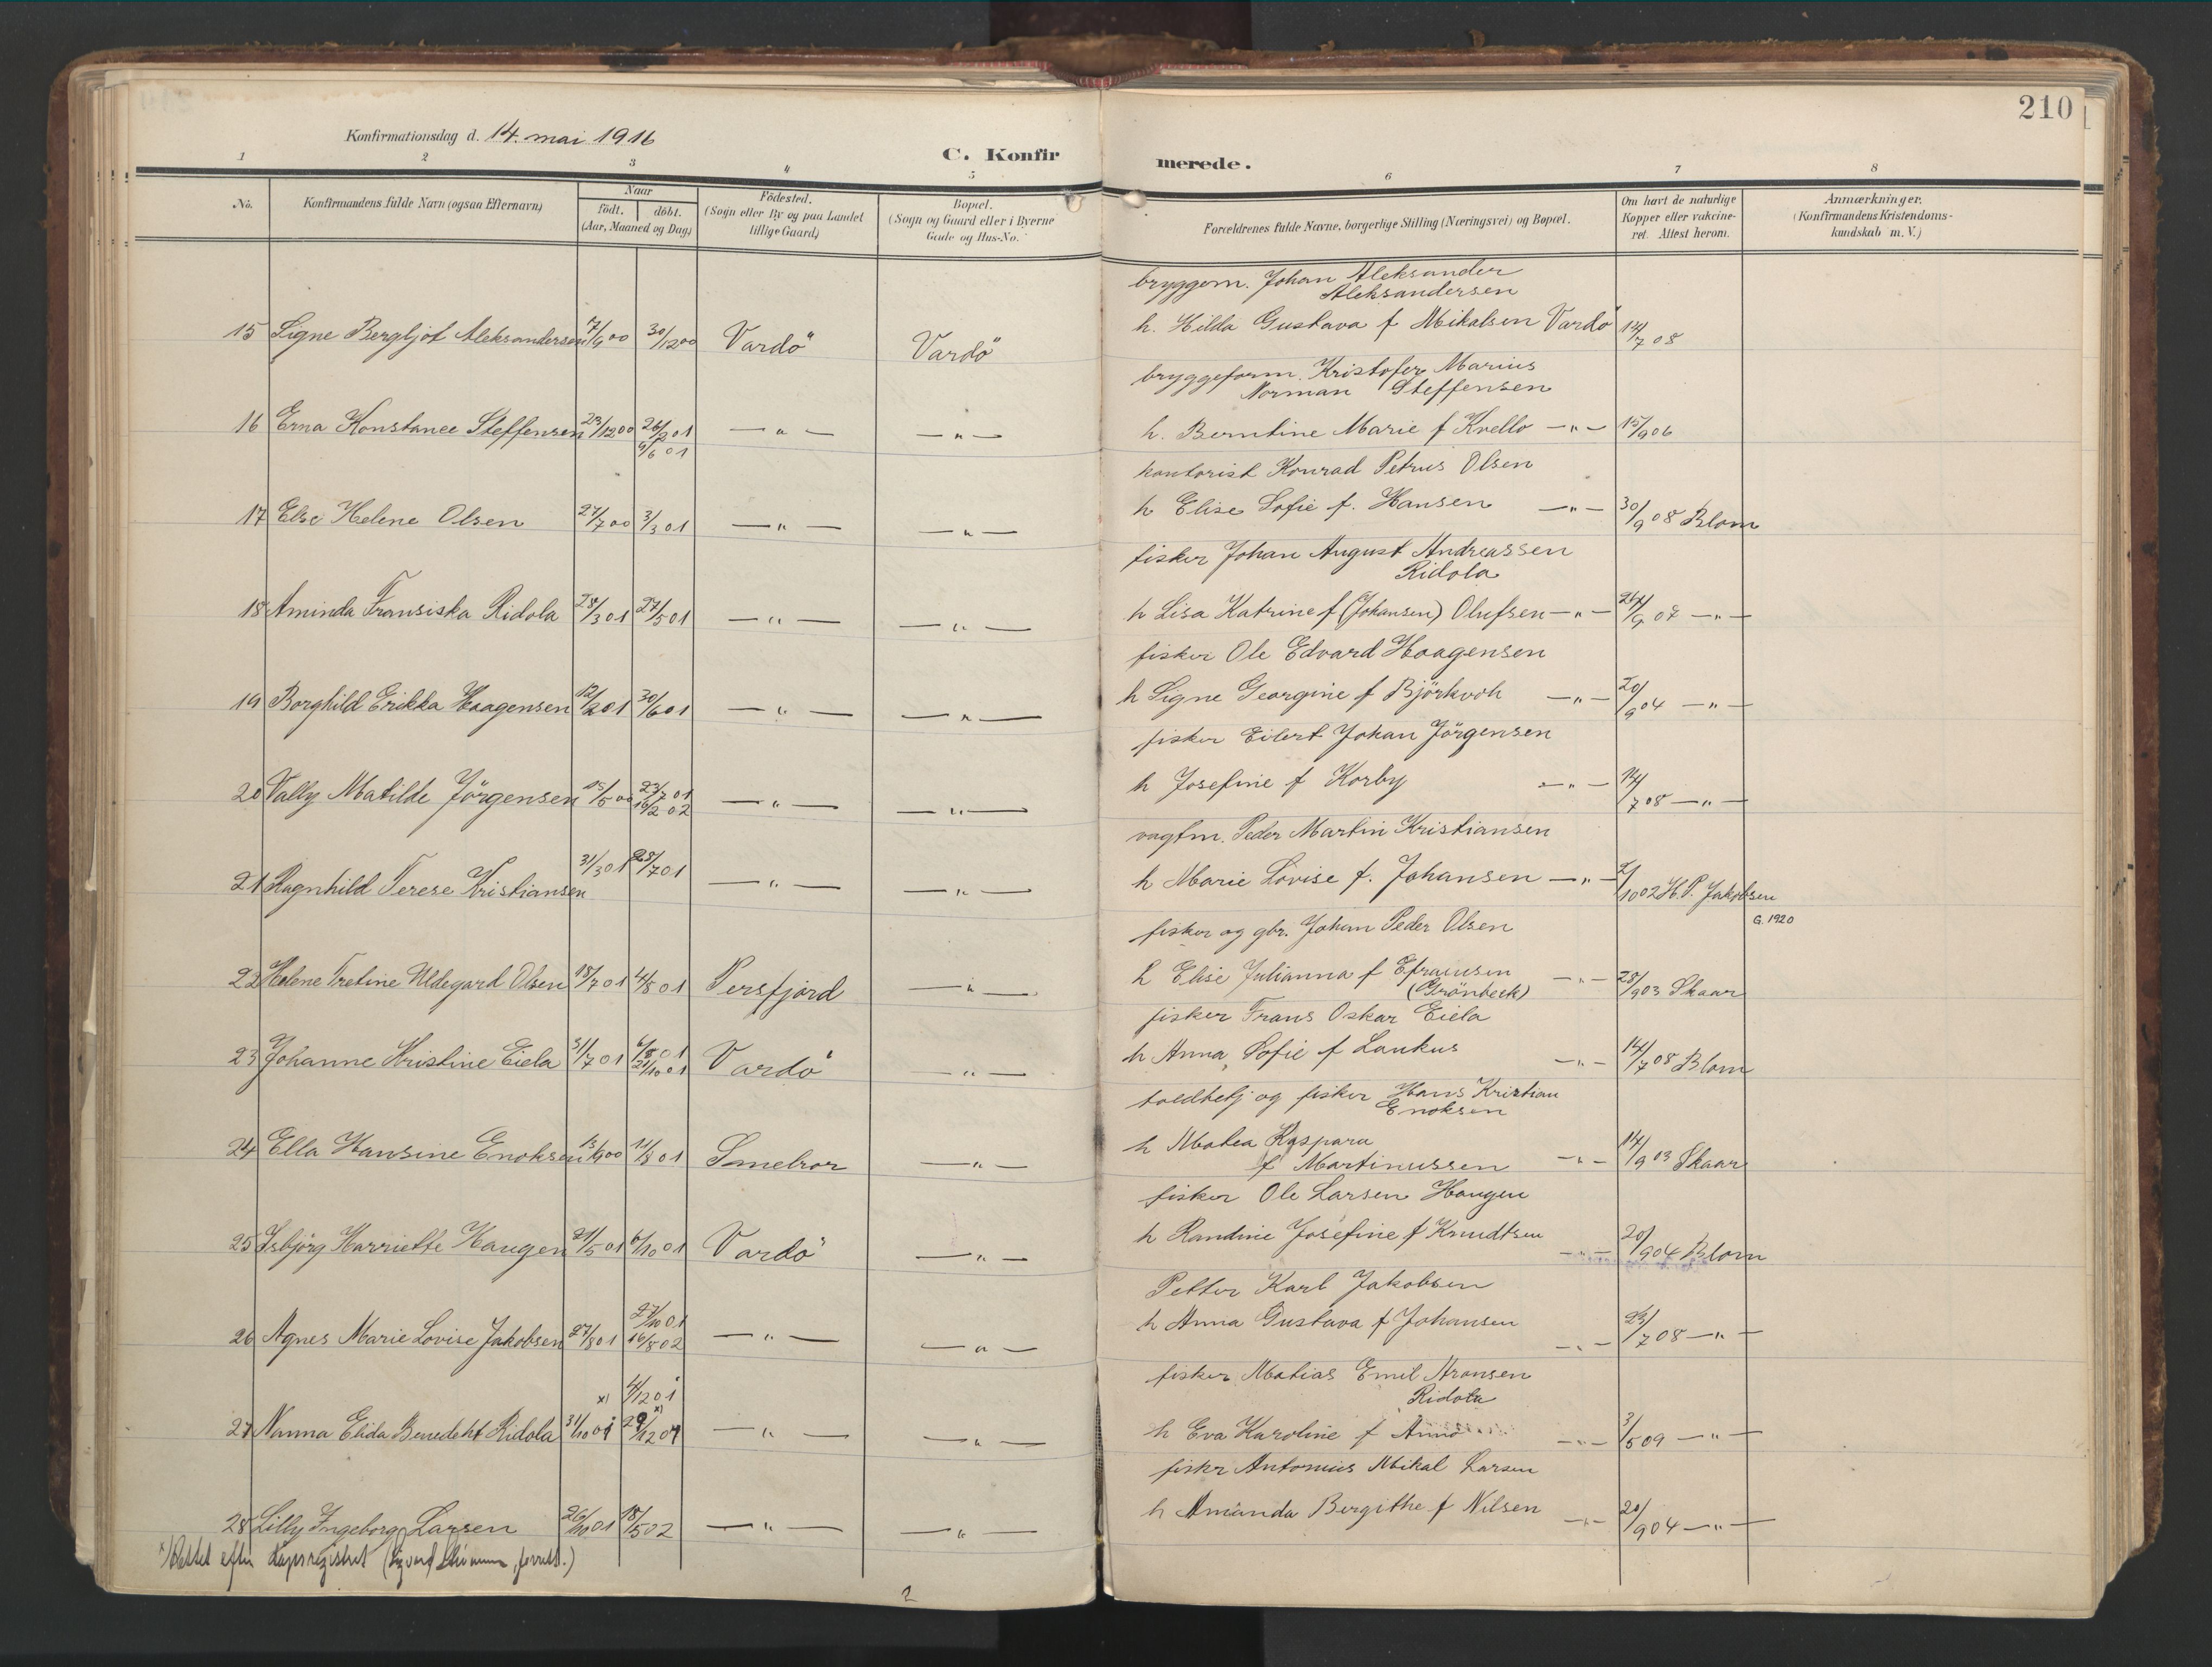 210
Konfirmationsdag d. 14. mai 1916
C. Konfirmerede.
1 2 3 4 5 6 7 8
No.
Konfirmandens fulde Navn (ogsaa Efternavn)
Naar
födt. döbt.
(Aar, Maaned og Dag)
Födested.
(Sogn eller By og paa Landet
tillige Gaard)
Bopæl.
(Sogn og Gaard eller i Byerne
Gade og Hus-No.
Forældrenes fulde Navne, borgerlige Stilling (Næringsvei) og Bopæl.
Om havt de naturlige
Kopper eller vakcine-
ret. Attest herom.
Anmærkninger.
(Konfirmandens Kristendoms-
kundskab m. V.)
bryggem. Johan Aleksander
Aleksandersen
15 Signe Bergljot Aleksandersen 7/9 00 30/12 00 Vardö Vardö h. Hilda Gustava f Mikalsen Vardö 14/7 08
bryggeform. Kristofer Marius
Norman Steffensen
16 Erna Konstance Steffensen 23/12 00 24/2 01 — " — — " — h. Berntine Marie f Kvello — " — 15/9 06
9/6 01
kontorist Konrad Petrus Olsen
17 Else Helene Olsen 27/7 00 3/3 01 — " — — " — h Elise Sofie f. Hansen — " — 30/9 08 Blom
fisker Johan August Andreassen
Ridola
18 Aminda Fransiska Ridola 28/3 01 27/5 01 — " — — " — h Lisa Katrine f (Johansen) Olufsen — " — 24/9 07 — " —
fisker Ole Edvard Haagensen
19 Borghild Erikka Haagensen 12/2 01 30/6 01 — " — — " — h Signe Georgine f Björkvoh — " — 20/9 04 — " —
fisker Eilert Johan Jörgensen
20 Vally Matilde Jörgensen 15/5 00 23/7 01 — " — — " — h Josefine f Korby — " — 14/7 08 — " —
16/2 02
vagtm. Peder Martin Kristiansen
21 Ragnhild Terese Kristiansen 31/3 01 28/7 01 — " — — " — h Marie Lovise f. Johansen — " — 2/10 02 H. P. Jakobsen
G. 1920
fisker og gbr. Johan Peder Olsen
22 Helene Tretine Uldegard Olsen 18/7 01 4/8 01 Persfjord — " — h Elise Julianna f Efraimsen — " — 28/9 03 Skaar
(Grönbeck)
fisker Frans Oskar Eiela
23 Johanne Kristine Eiela 31/7 01 6/8 01 Vardö — " — h Anna Sofie f Lankus — " — 14/7 08 Blom
21/10 01
toldbetj og fisker Hans Kristian
Enoksen
24 Ella Hansine Enoksen 13/9 00 11/8 01 Smelror — " — h Matea Kaspara
f Martinussen — " — 14/9 03 Skaar
fisker Ole Larsen Haugen
25 Isbjörg Harriette Haugen 21/5 01 6/10 01 Vardö — " — h Randine Josefine f Knudtsen — " — 20/9 04 Blom
Petter Karl Jakobsen
27/10 01
26 Agnes Marie Lovise Jakobsen 27/8 01 16/8 02 — " — — " — h Anna Gustava f Johansen — " — 23/7 08 — " —
fisker Matias Emil Aronsen
Ridola
x) 4/12 01
27 Nanna Elida Benedekt Ridola 31/10 01 29/12 01 x) — " — — " — h Eva Karoline f — " — 3/5 09 — " —
fisker Antonius Mikal Larsen
28 Lilly Ingeborg Larsen 26/10 01 18/5 02 — " — — " — h Amanda Bergithe f Nilsen — " — 20/9 04 — " —
x) Rettet efter dåpsregistret
2